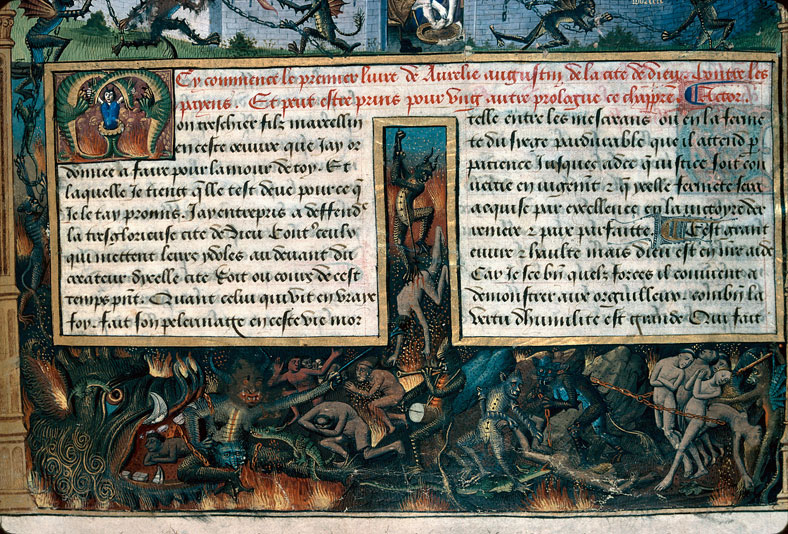 Cy commence le premier liure de Aurelle augustin de la cite de dieu. Contre les
payens. Et peut estre prins pour vng autre prologue ce chappitre. Lacteur.
on treschier filz marcellin
en ceste oeuure que Jay or
donnee a faire pour lamour de toy. Et
laquelle Je tieng qlle test deue pource q
Je le tay promis. Jay entrepris a deffendr
la tresglorieuse cite de Dieu Contre ceulx
qui mettent leurs ydoles au deuant du
createur dycelle cite Soit ou cours de cest
temps pnt. Quant celui qui vit en vraye
foy. fait son pelerinaige en ceste vie mor
telle entre les mescreans ou en la ferme
te du siege pardurable que il attend p
patience Jusques adce que iustice soit con
uertie en iugemt & q ycelle fermete sera
acquise par excellence en la victoyre der
reniere & paix parfaitte Cest grant
euure & haulte mais dieu est en nre aide
Car Je scey bn quelz forces il conuient a
demonstrer aux orguilleux. combn la
vertu dhumilite est grande Qui fait